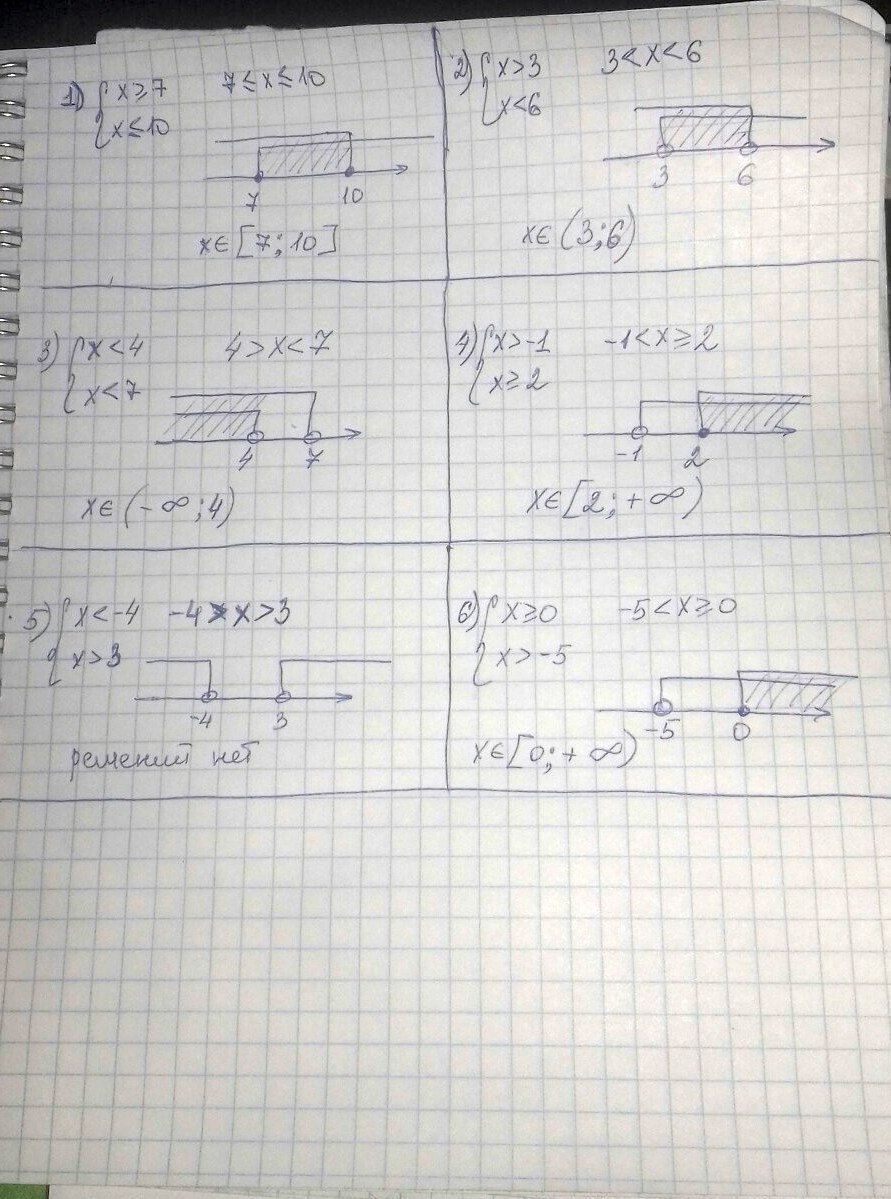 1) { x ≥ 7   7 ≤ x ≤ 10
x ≤ 10
7 10
x ∈ [7; 10]
2) { x > 3   3 < x < 6
x < 6
3 6
x ∈ (3; 6)
3) { x < 4   4 > x < 7
x < 7
4 7
x ∈ (-∞; 4)
4) { x > -1   -1 < x ≥ 2
x ≥ 2
-1 2
x ∈ [2; +∞)
5) { x < -4   -4 > x > 3
x > 3
-4 3
решений нет
6) { x ≥ 0   -5 < x ≥ 0
x > -5
-5 0
x ∈ [0; +∞)